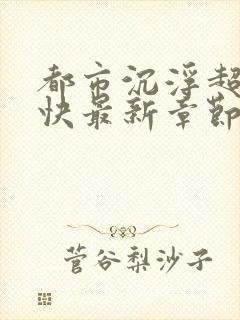 都市沉浮超
快最新章節
菅谷梨沙子